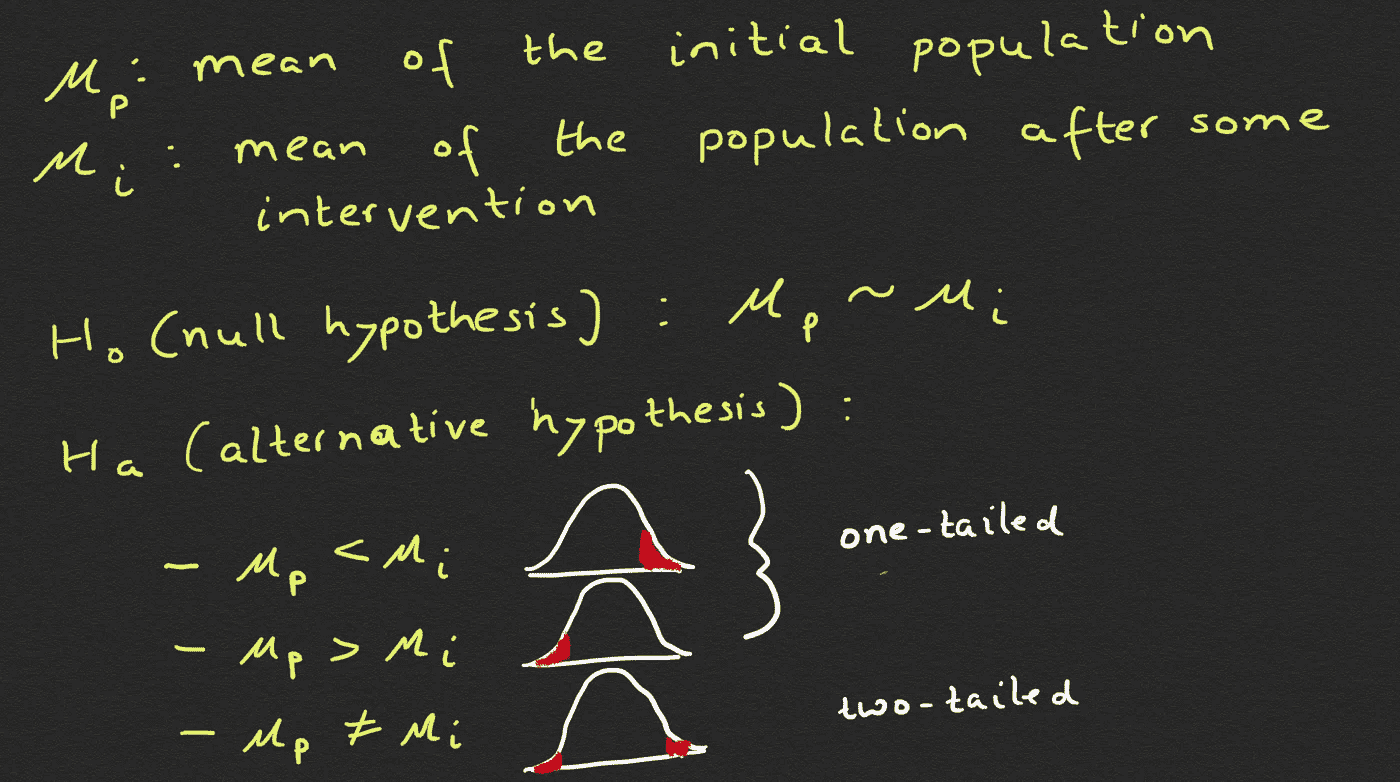 μp: mean of the initial population
μi : mean of the population after some
intervention
H₀ (null hypothesis) : μp ~ μi
Ha (alternative hypothesis) :
- μp < μi
one-tailed
- μp > μi
- μp ≠ μi
two-tailed